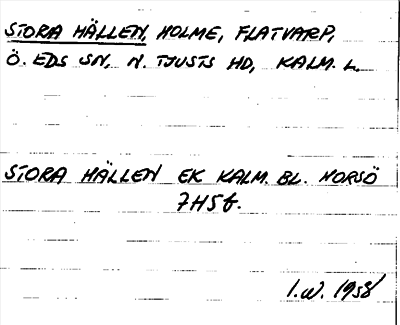 STORA HÄLLEN, HOLME, FLATVARP,
Ö. EDS SN, N. TJUSTS HD, KALM. L.
STORA HÄLLEN EK KALM. BL. HORSÖ
7H5f.
I.W. 1958